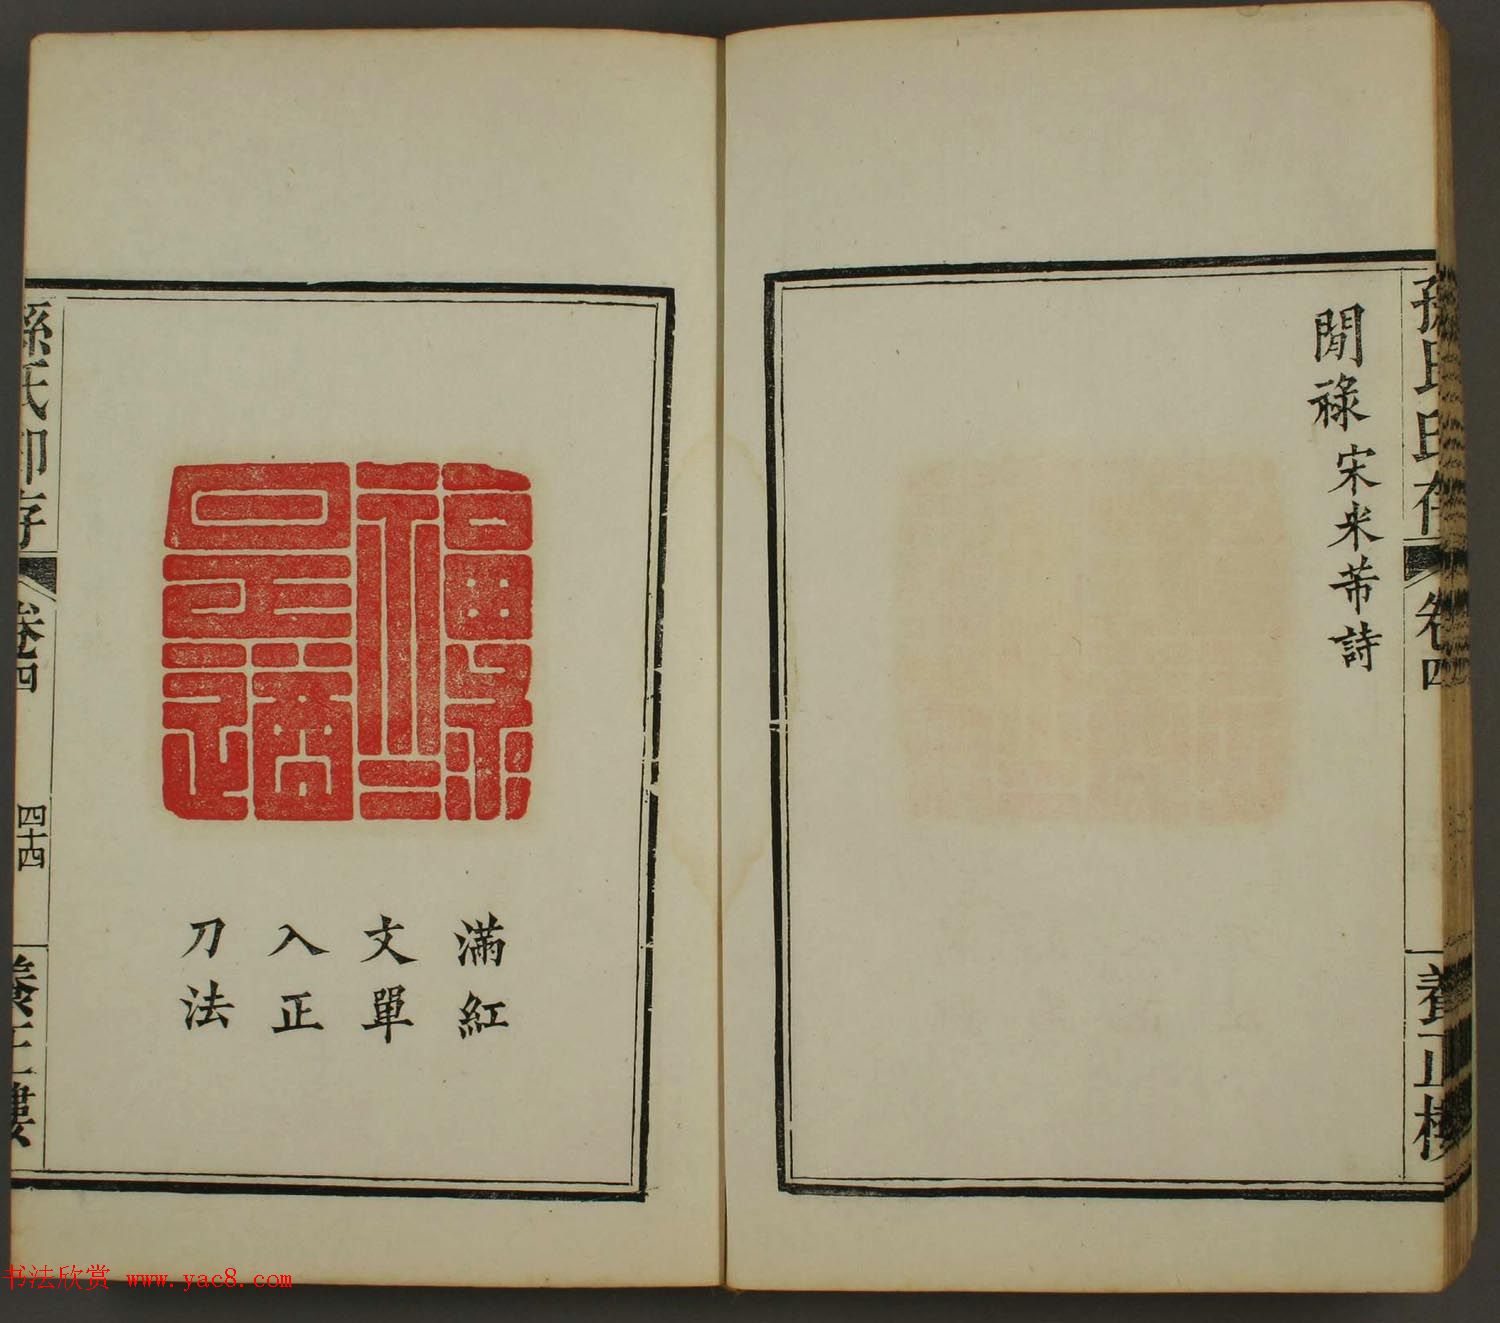 孫氏印存 卷四 養正樓
閒祿 宋米芾詩
滿紅
文單
入正
刀法
孫氏印存 卷四 四十四 養正樓
书法欣赏 www.yac8.com